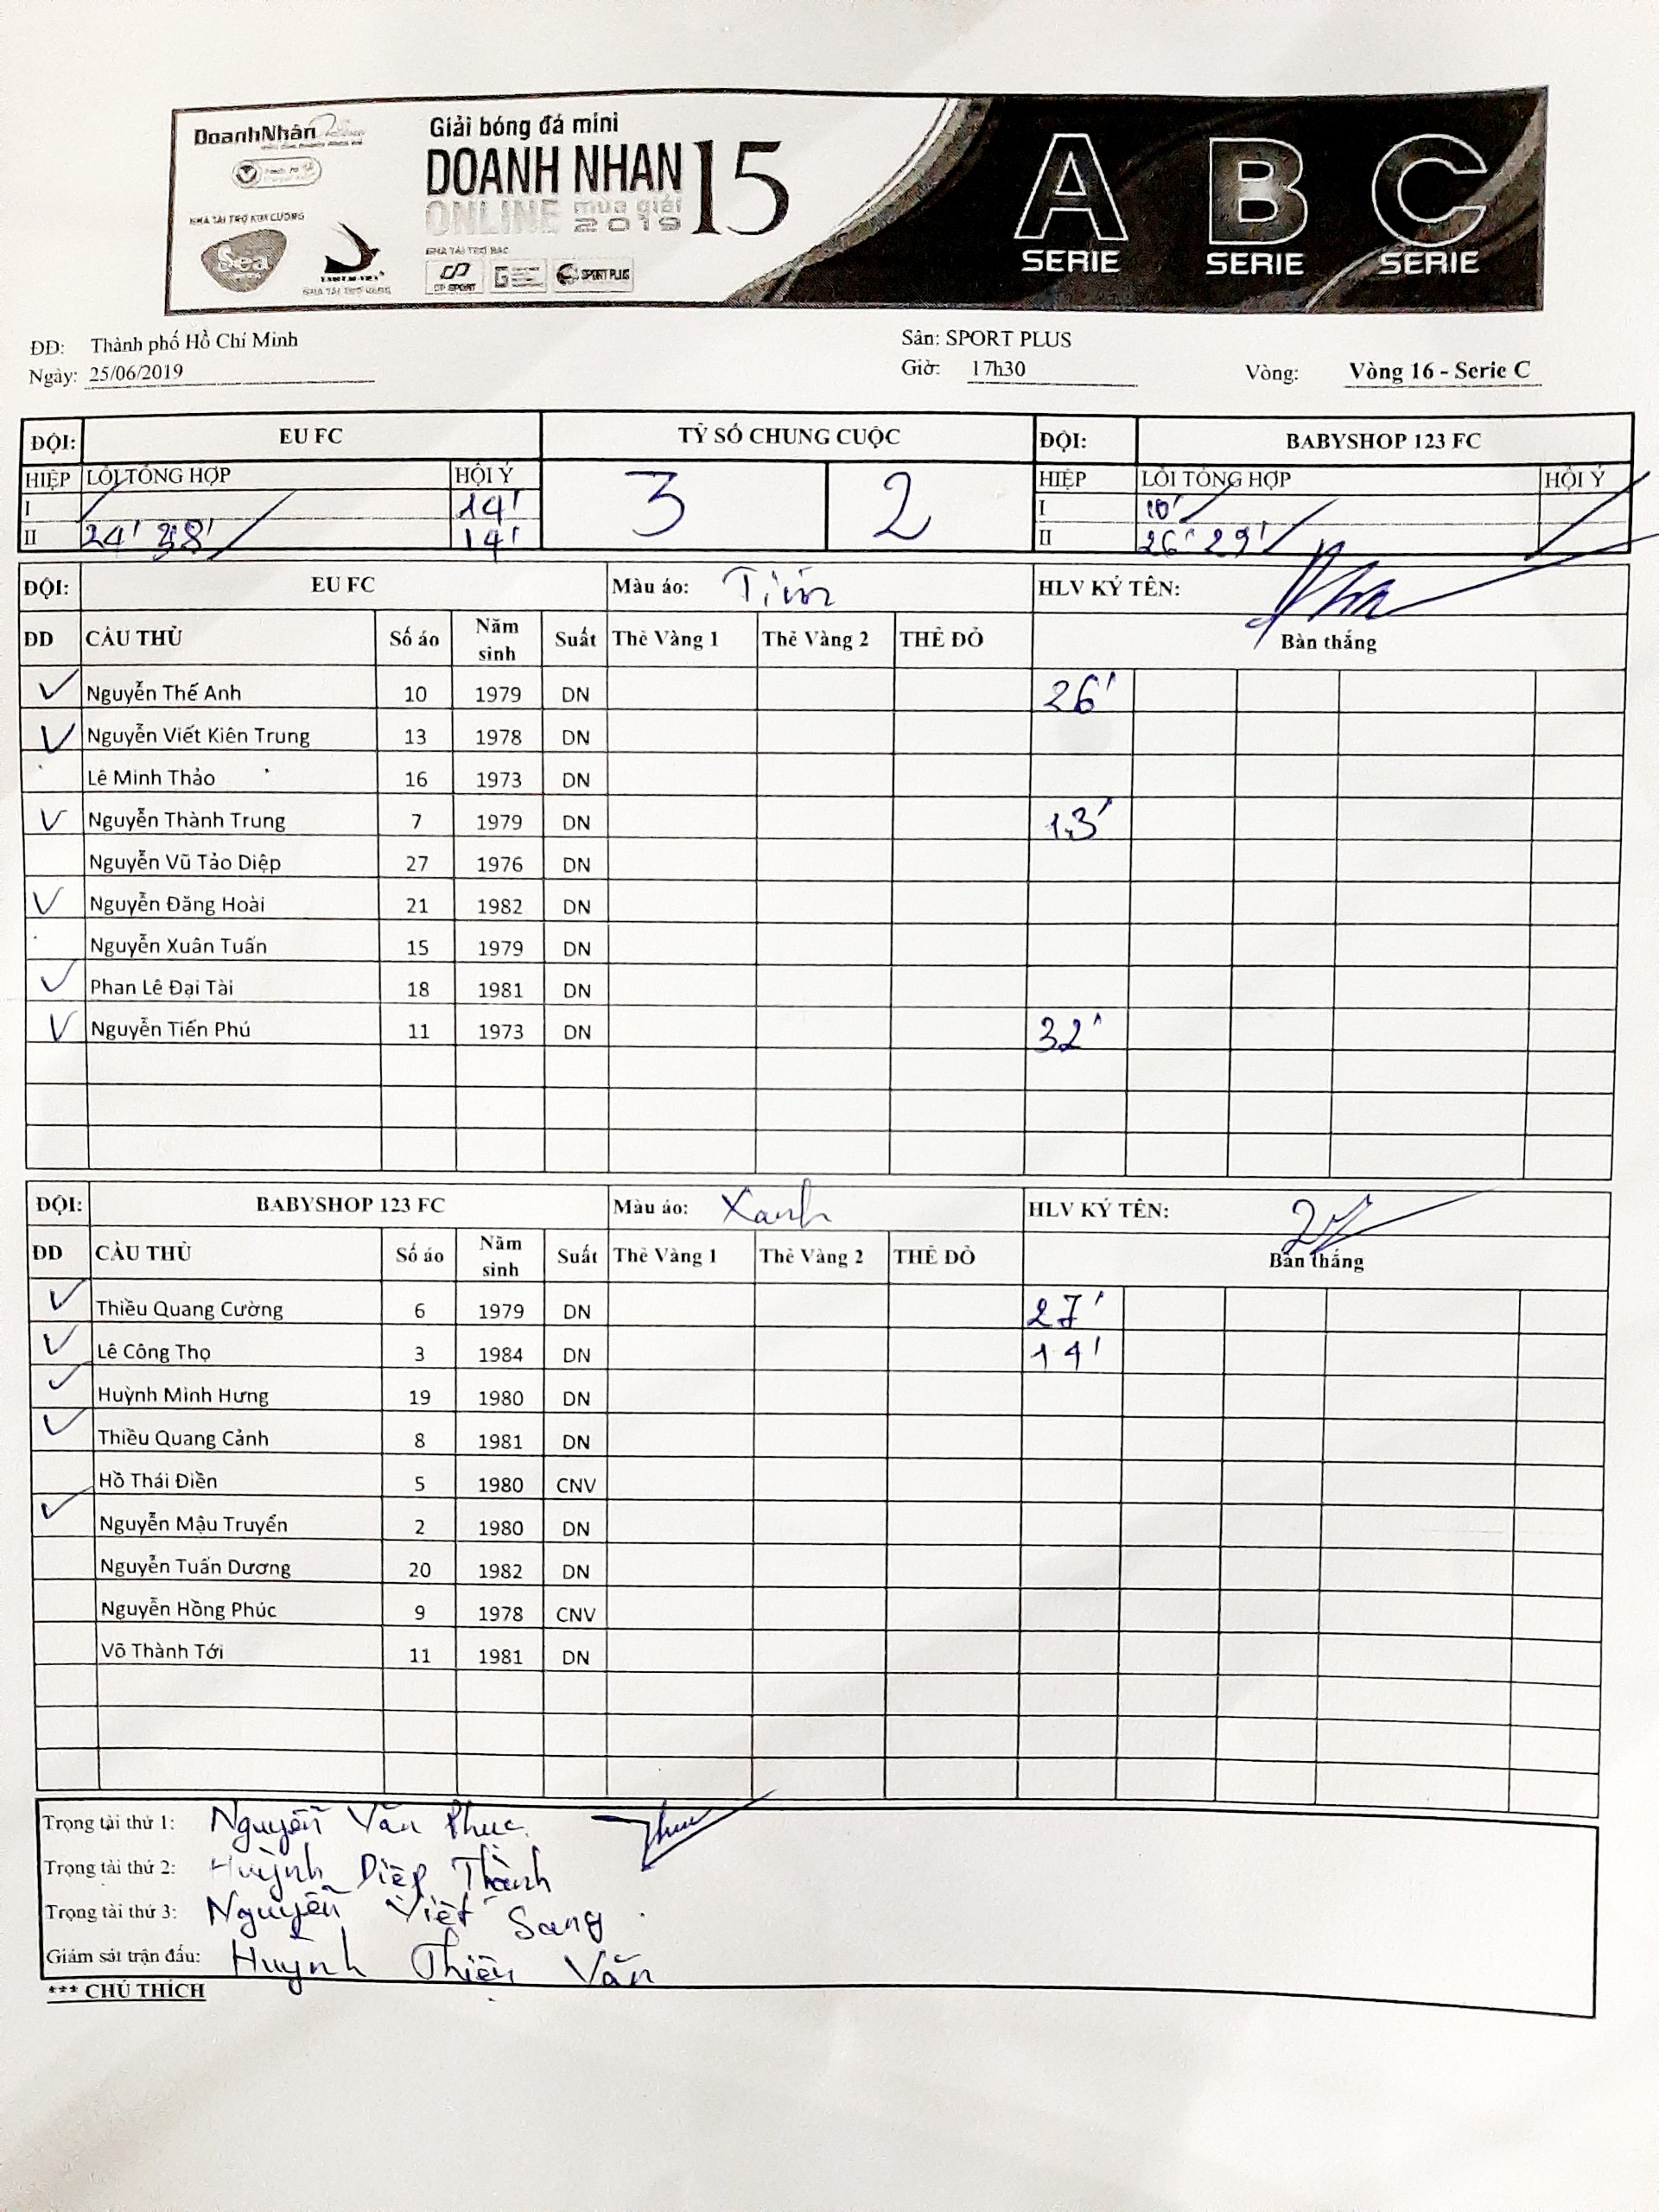 DoanhNhân
NHÀ TÀI TRỢ KIM CƯƠNG
Sea
NHÀ TÀI TRỢ VÀNG
Giải bóng đá mini
DOANH NHAN 15
ONLINE mùa giải 2019
NHÀ TÀI TRỢ BẠC
CP SPORT
SPORT PLUS
A SERIE B SERIE C SERIE
ĐĐ: Thành phố Hồ Chí Minh Sân: SPORT PLUS
Ngày: 25/06/2019 Giờ: 17h30 Vòng: Vòng 16 - Serie C
ĐỘI: EU FC TỶ SỐ CHUNG CUỘC ĐỘI: BABYSHOP 123 FC
HIỆP LỖI TỔNG HỢP HỘI Ý 3 2 HIỆP LỖI TỔNG HỢP HỘI Ý
I 14' I 10'
II 24' 38' 14' II 26' 29'
ĐỘI: EU FC Màu áo: Tím HLV KÝ TÊN:
ĐD CẦU THỦ Số áo Năm sinh Suất Thẻ Vàng 1 Thẻ Vàng 2 THẺ ĐỎ Bàn thắng
Nguyễn Thế Anh 10 1979 DN 26'
Nguyễn Viết Kiên Trung 13 1978 DN
Lê Minh Thảo 16 1973 DN
Nguyễn Thành Trung 7 1979 DN 13'
Nguyễn Vũ Tảo Diệp 27 1976 DN
Nguyễn Đăng Hoài 21 1982 DN
Nguyễn Xuân Tuấn 15 1979 DN
Phan Lê Đại Tài 18 1981 DN
Nguyễn Tiến Phú 11 1973 DN 32'
ĐỘI: BABYSHOP 123 FC Màu áo: Xanh HLV KÝ TÊN:
ĐD CẦU THỦ Số áo Năm sinh Suất Thẻ Vàng 1 Thẻ Vàng 2 THẺ ĐỎ Bàn thắng
Thiều Quang Cường 6 1979 DN 27'
Lê Công Thọ 3 1984 DN 14'
Huỳnh Minh Hưng 19 1980 DN
Thiều Quang Cảnh 8 1981 DN
Hồ Thái Điền 5 1980 CNV
Nguyễn Mậu Truyển 2 1980 DN
Nguyễn Tuấn Dương 20 1982 DN
Nguyễn Hồng Phúc 9 1978 CNV
Võ Thành Tới 11 1981 DN
Trọng tài thứ 1: Nguyễn Văn Phuc
Trọng tài thứ 2: Huỳnh Diệp Thành
Trọng tài thứ 3: Nguyễn Việt Sang
Giám sát trận đấu: Huỳnh Thiện Văn
*** CHÚ THÍCH